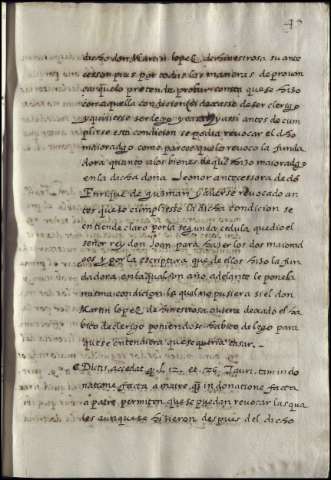 dicho don Martin lopez de hinestrosa su ante
cessor pues por todas las maneras de provan
ças que lo pretende provar consta que se hizo
con aquella condicion de dexasse de ser clerigo
y quisiesse ser lego y casar y assi antes de cum
plirse esta condicion se podia revocar el dho
maioradgo como parece que lo revoco la funda
dora quanto a los bienes de que hizo maioradgo
en la dicha doña Leonor antecessora de dō
Enrrique de guzman y averse revocado an
tes que se cumpliesse la dicha condicion se
entiende claro por la segunda cedula que dio el
señor rey don Joan para hazer los dos maiorad
gos y por la escriptura que de ellos hizo la fun
dadora en la qual un año adelante le pone la
misma condicion la qual no pusiera si el don
Martin lopez de hinestrosa oviera dexado el ha
bito de clerigo poniendose habito de lego para
que se entendiera que se queria casar
Dictis, accedat
natione facta a patre in donatione facta
a patre permiten que se puedan revocar las qua
les aunque se hizieron despues del dicho